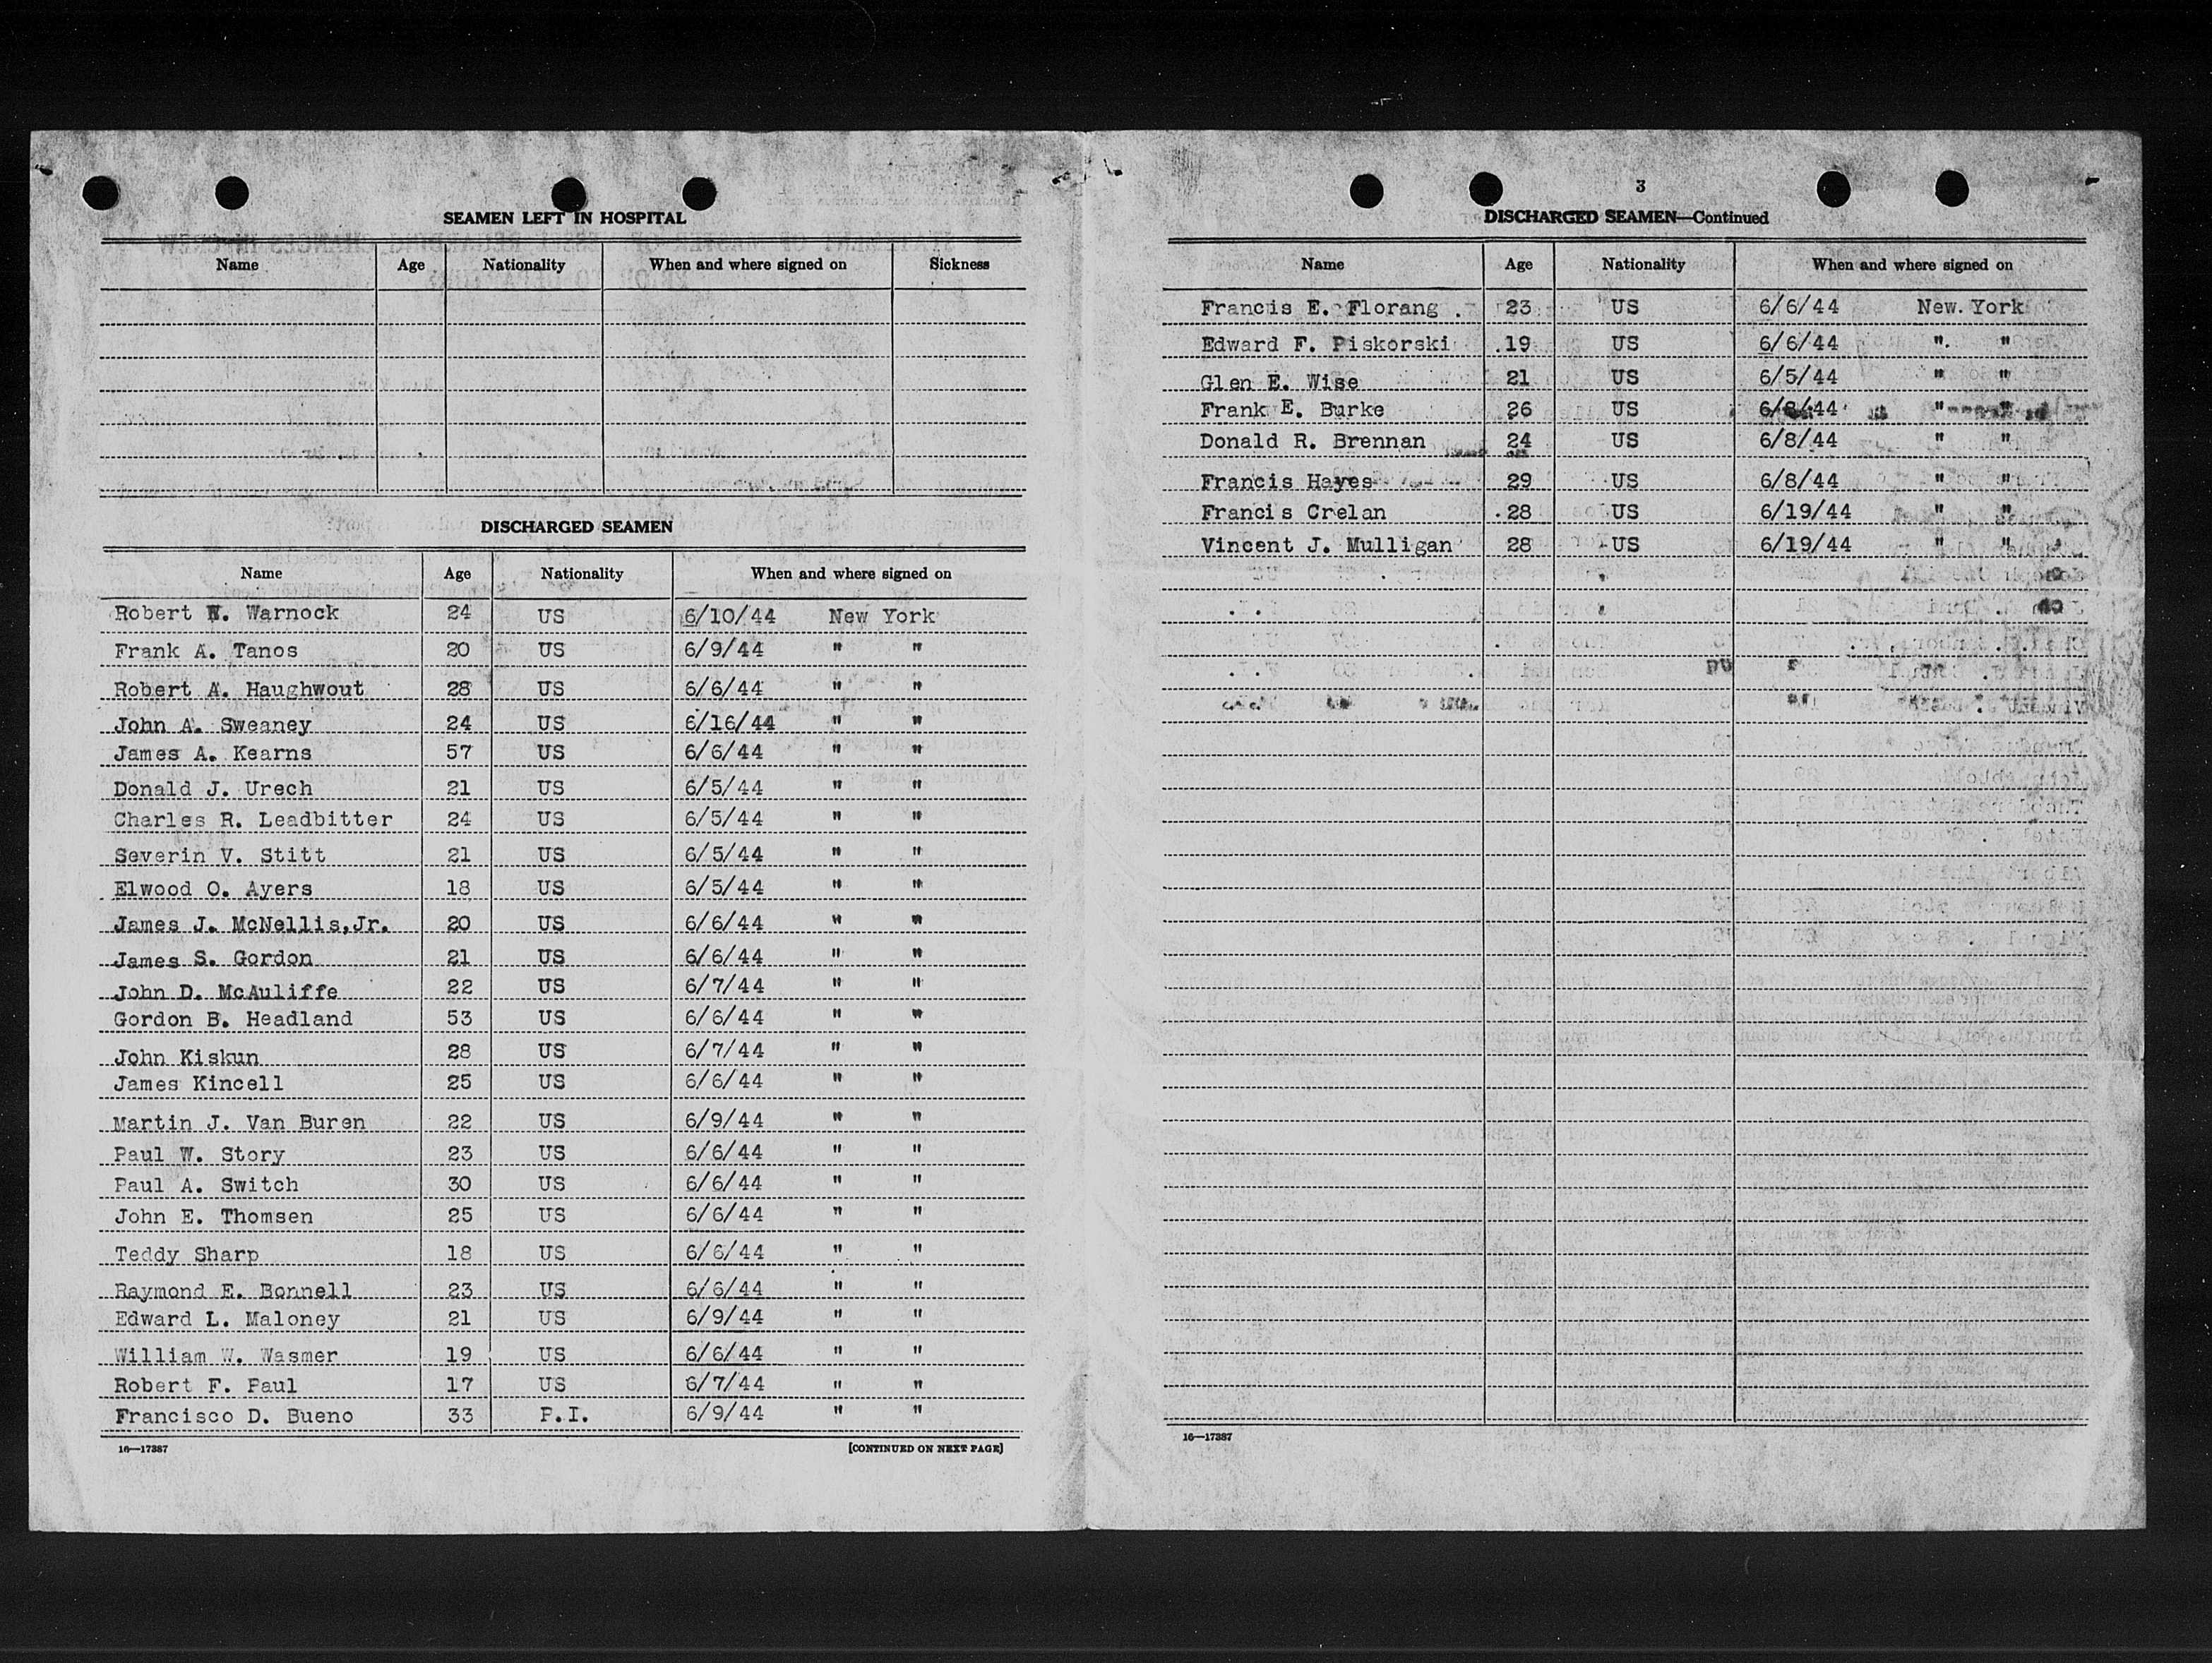 SEAMEN LEFT IN HOSPITAL
Name Age Nationality When and where signed on Sickness
DISCHARGED SEAMEN
Name Age Nationality When and where signed on
Robert W. Warnock 24 US 6/10/44 New York
Frank A. Tanos 20 US 6/9/44 " "
Robert A. Haughwout 28 US 6/6/44 " "
John A. Sweaney 24 US 6/16/44 " "
James A. Kearns 57 US 6/6/44 " "
Donald J. Urech 21 US 6/5/44 " "
Charles R. Leadbitter 24 US 6/5/44 " "
Severin V. Stitt 21 US 6/5/44 " "
Elwood O. Ayers 18 US 6/5/44 " "
James J. McNellis,Jr. 20 US 6/6/44 " "
James S. Gordon 21 US 6/6/44 " "
John D. McAuliffe 22 US 6/7/44 " "
Gordon B. Headland 53 US 6/6/44 " "
John Kiskun 28 US 6/7/44 " "
James Kincell 25 US 6/6/44 " "
Martin J. Van Buren 22 US 6/9/44 " "
Paul W. Story 23 US 6/6/44 " "
Paul A. Switch 30 US 6/6/44 " "
John E. Thomsen 25 US 6/6/44 " "
Teddy Sharp 18 US 6/6/44 " "
Raymond E. Bonnell 23 US 6/6/44 " "
Edward L. Maloney 21 US 6/9/44 " "
William W. Wasmer 19 US 6/6/44 " "
Robert F. Paul 17 US 6/7/44 " "
Francisco D. Bueno 33 P.I. 6/9/44 " "
16—17387 [CONTINUED ON NEXT PAGE]
3
DISCHARGED SEAMEN—Continued
Name Age Nationality When and where signed on
Francis E. Florang 23 US 6/6/44 New York
Edward F. Piskorski 19 US 6/6/44 " "
Glen E. Wise 21 US 6/5/44 " "
Frank E. Burke 26 US 6/8/44 " "
Donald R. Brennan 24 US 6/8/44 " "
Francis Hayes 29 US 6/8/44 " "
Francis Crelan 28 US 6/19/44 " "
Vincent J. Mulligan 28 US 6/19/44 " "
16—17387